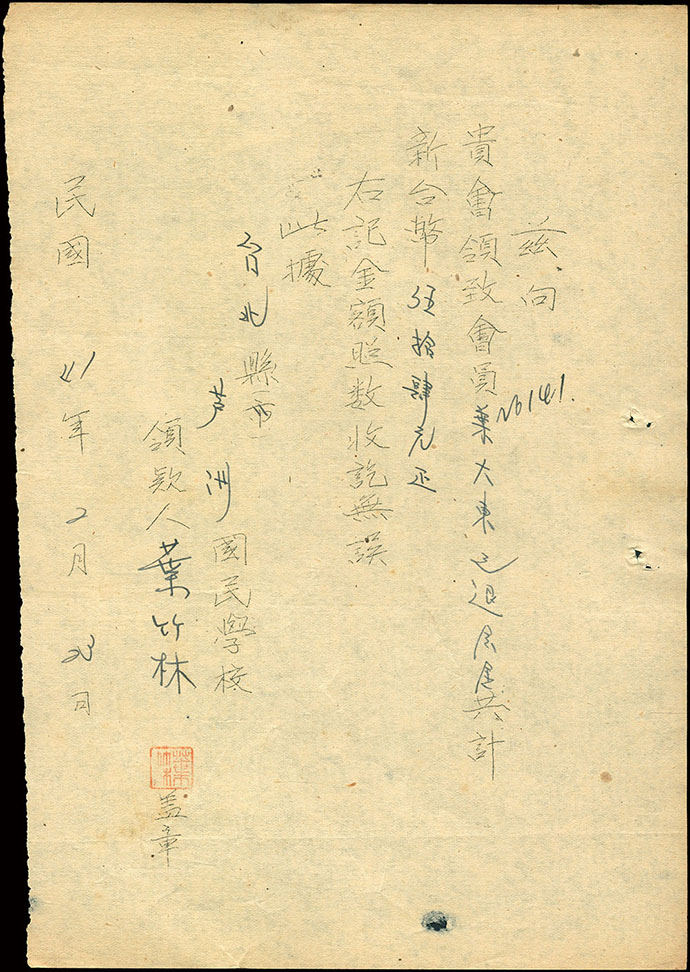 茲向
貴會領致會員葉大東已退居居共計
No 141.
新台幣伍拾肆元正
右記金額照数收訖無誤
此據
台北縣市
芦洲國民學校
領欵人葉竹林
葉竹林
盖章
民國41年2月23日